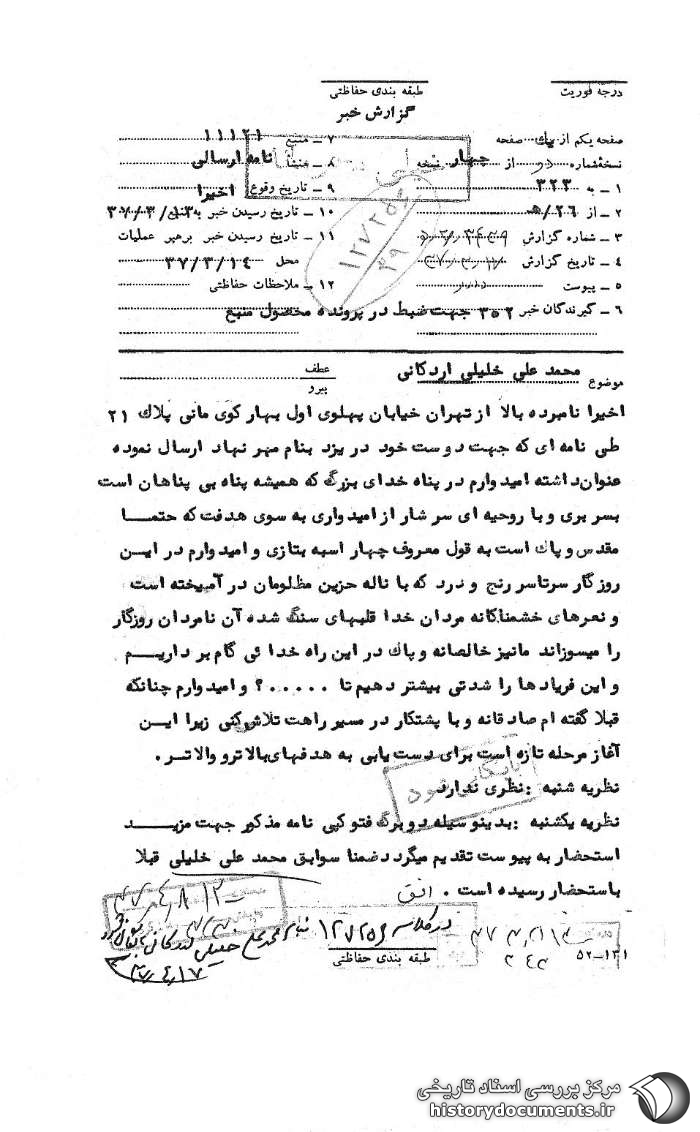 درجه فوریت
طبقه بندی حفاظتی
گزارش خبر
صفحه یکم از یک صفحه
نسخهٔ شماره دو از چهار نسخه
۱ – به ۳۲۳
۲ – از ۲۶/ه
۳ – شماره گزارش
۴ – تاریخ گزارش
۵ – پیوست دارد
۶ – گیرندگان خبر ۳۵۲ جهت ضبط در پرونده محصول منبع
۷ – منبع ۱۱۱۲۱
۸ – منشأ نامه ارسالی
۹ – تاریخ وقوع اخیرا
۱۰ – تاریخ رسیدن خبر به منبع ۳۷/۳/۱۳
۱۱ – تاریخ رسیدن خبر برهبر عملیات
محل ۳۷/۳/۱۴
۱۲ – ملاحظات حفاظتی
۱۲۷۲۵۶
۳۹
موضوع محمد علی خلیلی اردکانی
عطف
پیرو
اخیرا نامبرده بالا از تهران خیابان پهلوی اول بهار کوی مانی پلاك ۲۱
طی نامه ای که جهت دوست خود در یزد بنام مهر نهاد ارسال نموده
عنوان داشته امیدوارم در پناه خدای بزرگ که همیشه پناه بی پناهان است
بسر بری و با روحیه ای سر شار از امیدواری به سوی هدفت که حتمـا
مقدس و پاك است به قول معروف چهار اسبه بتازی و امیدوارم در ایـن
روزگار سرتاسر رنج و درد که با ناله حزین مظلومان در آمیخته است
و نعرهای خشمناکانه مردان خدا قلبهای سنگ شده آن نامردان روزگار
را میسوزاند مانیز خالصانه و پاك در این راه خدا ئی گام بر داریـم
و این فریادها را شدتی بیشتر دهیم تا ..... ؟ و امیدوارم چنانکه
قبلا گفته ام صادقانه و با پشتکار در مسیر راهت تلاش کنی زیرا ایـن
آغاز مرحله تازه است برای دست یابی به هدفهای بالاتر و والاتر .
نظریه شنبه : نظری ندارد
بایگانی شود
نظریه یکشنبه : بدینوسیله دو برگ فتوکپی نامه مذکور جهت مزیـد
استحضار به پیوست تقدیم میگردد ضمنا سوابق محمد علی خلیلی قبلا
باستحضار رسیده است . افق
در کلاسه ۱۲۷۲۵۶ بنام محمدعلی خلیلی اردکانی بایگانی شود
۳۷/۴/۱۷
طبقه بندی حفاظتی
۵۲–۱۳۱
مرکز بررسی اسناد تاریخی
historydocuments.ir